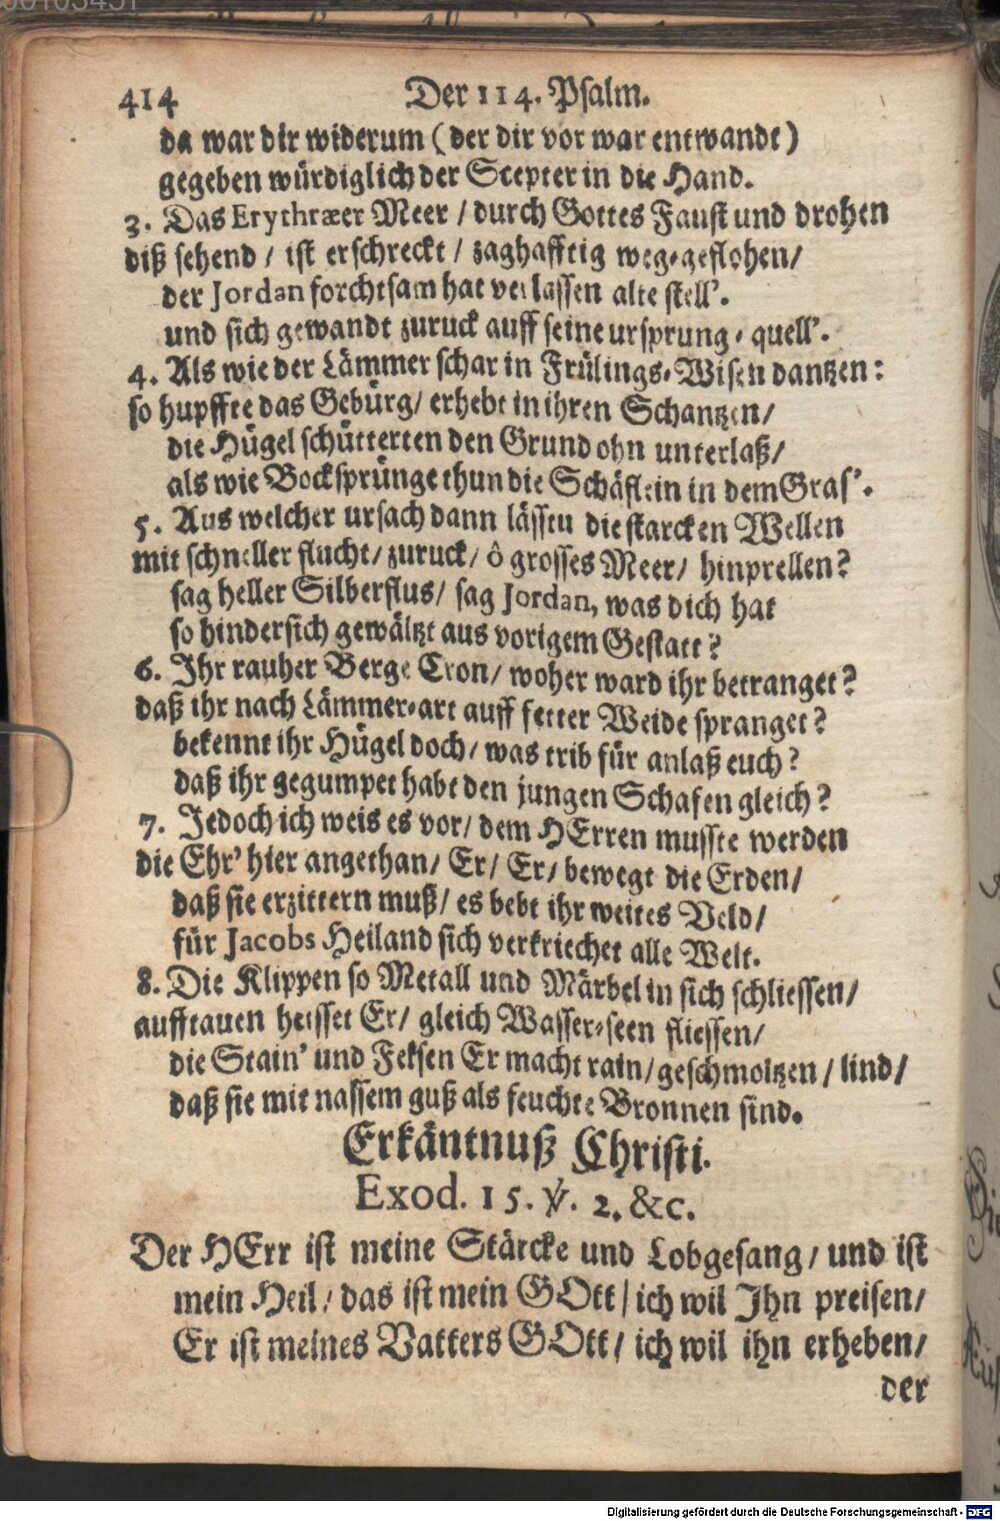 414 Der 114. Psalm.
da war dir widerum (der dir vor war entwandt)
gegeben würdiglich der Scepter in die Hand.
3. Das Erythræer Meer / durch Gottes Faust und drohen
diß sehend / ist erschreckt / zaghafftig weg-geflohen /
der Jordan forchtsam hat verlassen alte stell'.
und sich gewandt zuruck auff seine ursprung-quell'.
4. Als wie der Lämmer schar in Frülings-Wisen dantzen:
so hupffte das Gebürg / erhebt in ihren Schantzen /
die Hügel schütterten den Grund ohn unterlaß /
als wie Bocksprünge thun die Schäflein in dem Gras'.
5. Aus welcher ursach dann lässtu die starcken Wellen
mit schneller flucht / zuruck / ô grosses Meer / hinprellen?
sag heller Silberflus / sag Jordan, was dich hat
so hindersich gewältzt aus vorigem Gestatt?
6. Ihr rauher Berge Cron / woher ward ihr betranget?
daß ihr nach Lämmer-art auff fetter Weide spranget?
bekennt ihr Hügel doch / was trib für anlaß euch?
daß ihr gegumpet habt den jungen Schafen gleich?
7. Jedoch ich weis es vor / dem HErren musste werden
die Ehr' hier angethan / Er / Er / bewegt die Erden /
daß sie erzittern muß / es bebt ihr weites Veld /
für Jacobs Heiland sich verkriechet alle Welt.
8. Die Klippen so Metall und Märbel in sich schliessen /
aufftauen heisset Er / gleich Wasser-seen fliessen /
die Stain' und Felsen Er macht rain / geschmoltzen / lind /
daß sie mit nassem guß als feuchte Bronnen sind.
Erkäntnuß Christi.
Exod. 15. ℣. 2. &c.
Der HErr ist meine Stärcke und Lobgesang / und ist
mein Heil / das ist mein GOtt / ich wil Ihn preisen /
Er ist meines Vatters GOtt / ich wil ihn erheben /
der
Digitalisierung gefördert durch die Deutsche Forschungsgemeinschaft - DFG